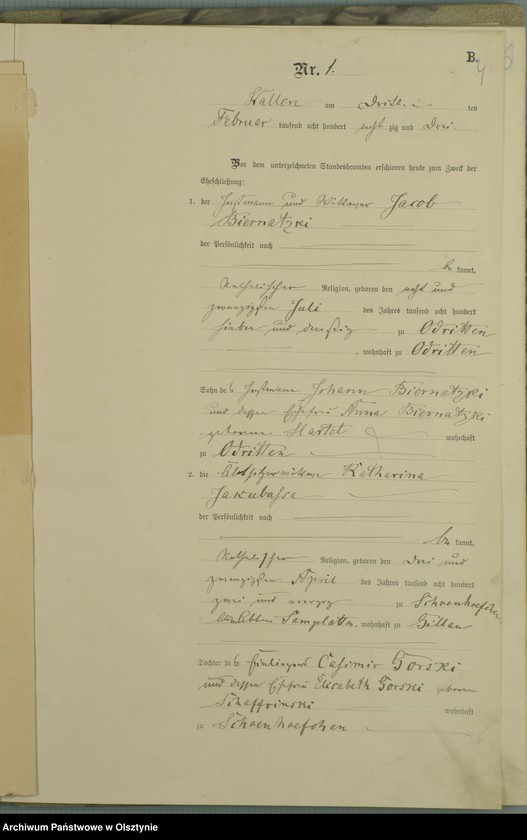 B.
4
Nr. 1.
Wallen am dritten ten
Februar tausend acht hundert acht zig und drei.
Vor dem unterzeichneten Standesbeamten erschienen heute zum Zweck der
Eheschließung:
1. der Instmann und Wittwer Jacob
Biernatzki
der Persönlichkeit nach
be kannt,
katholischer Religion, geboren den acht und
zwanzigsten Juli des Jahres tausend acht hundert
sieben und dreißig zu Odritten
, wohnhaft zu Odritten
Sohn des Instmann Johann Biernatzki
und dessen Ehefrau Anna Biernatzki
geborene Hartel wohnhaft
zu Odritten
2. die Katharina
Jakubassa
der Persönlichkeit nach
be kannt,
katholischer Religion, geboren den drei und
zwanzigsten April des Jahres tausend acht hundert
zwei und vierzig zu Schoenhoefchen
, wohnhaft zu Gillau
Tochter des Einliegers Casimir Gorski
und dessen Ehefrau Elisabeth Gorski geborene
Schaffrinski wohnhaft
zu Schoenhoefchen
Archiwum Państwowe w Olsztynie